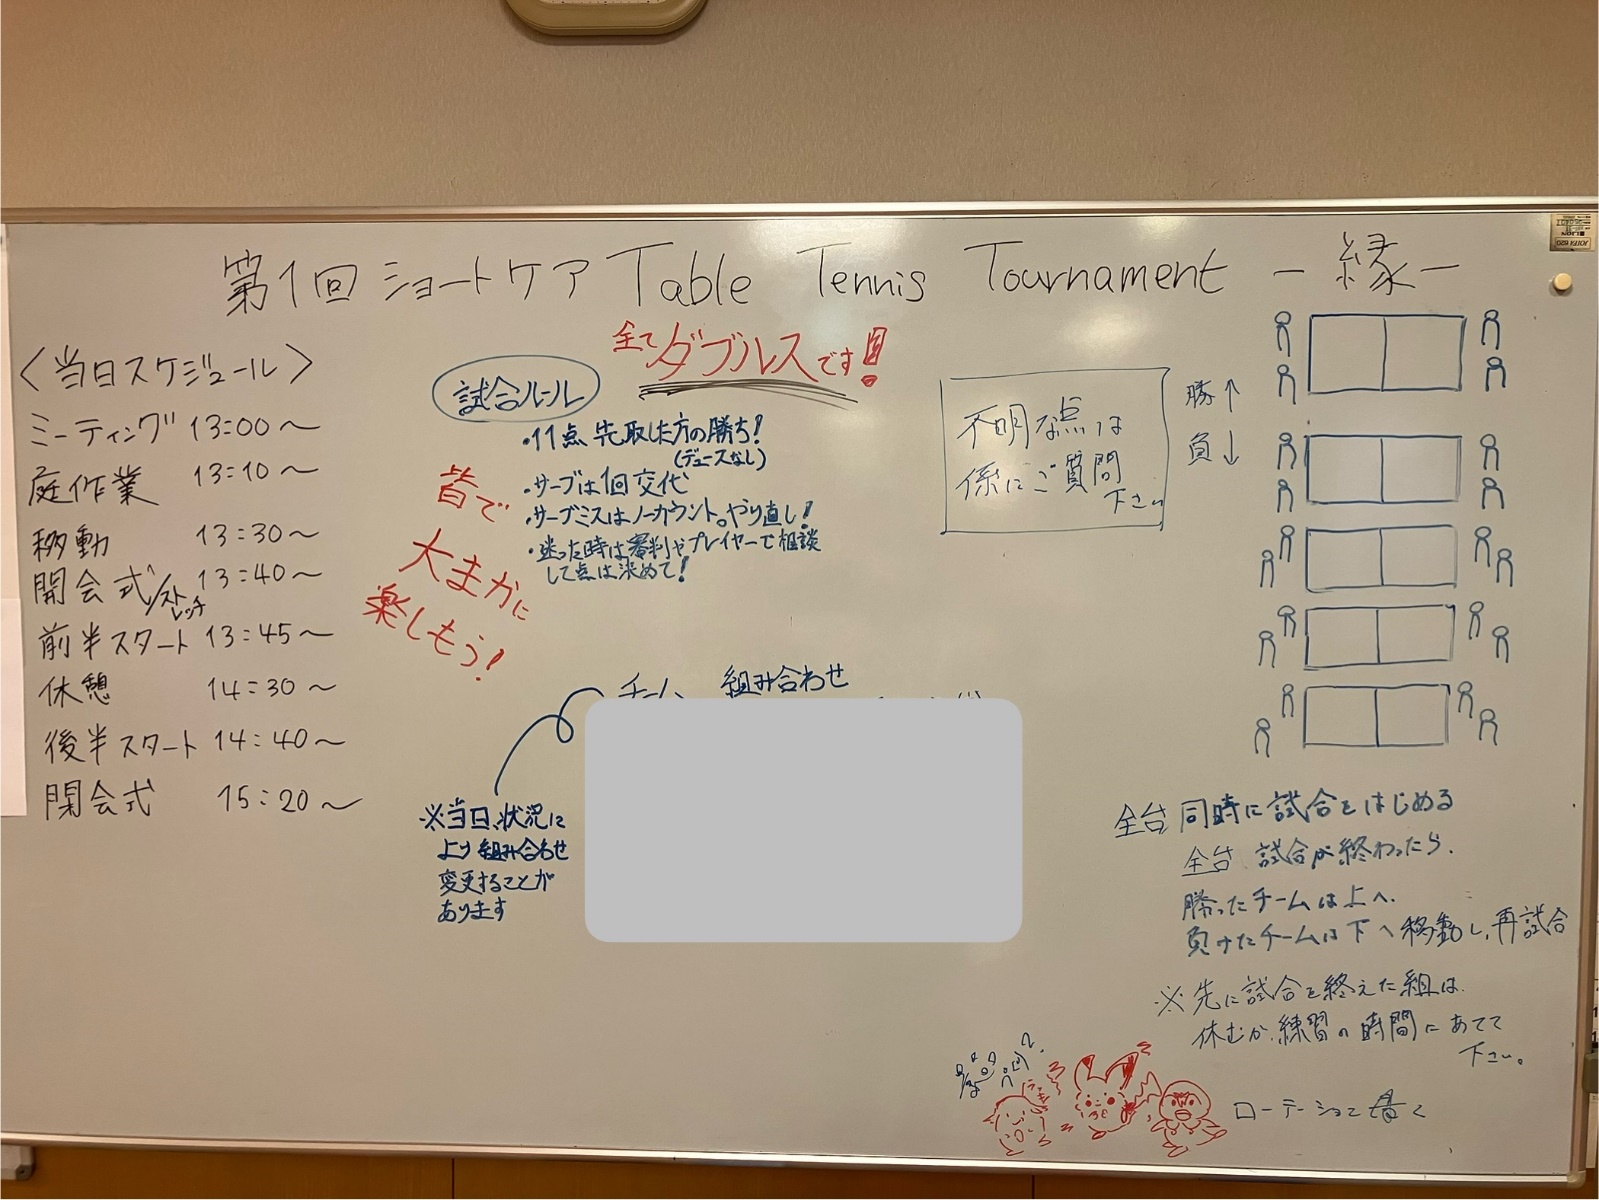 第1回 ショートケア Table Tennis Tournament －縁－
〈当日スケジュール〉
ミーティング 13:00～
庭作業 13:10～
移動 13:30～
開会式/ストレッチ 13:40～
前半スタート 13:45～
休憩 14:30～
後半スタート 14:40～
閉会式 15:20～
全てダブルスです!
試合ルール
・11点先取した方の勝ち!
(デュースなし)
・サーブは1回交代
・サーブミスはノーカウント。やり直し!
・迷った時は審判やプレイヤーで相談
して点は決めて!
皆で
大まかに
楽しもう!
チーム 組み合わせ
※当日、状況に
より組み合わせ
変更することが
あります
不明な点は
係にご質問
下さい
勝↑
負↓
全台同時に試合をはじめる
全台 試合が終わったら、
勝ったチームは上へ、
負けたチームは下へ移動し、再試合
※先に試合を終えた組は、
休むか、練習の時間にあてて
下さい。